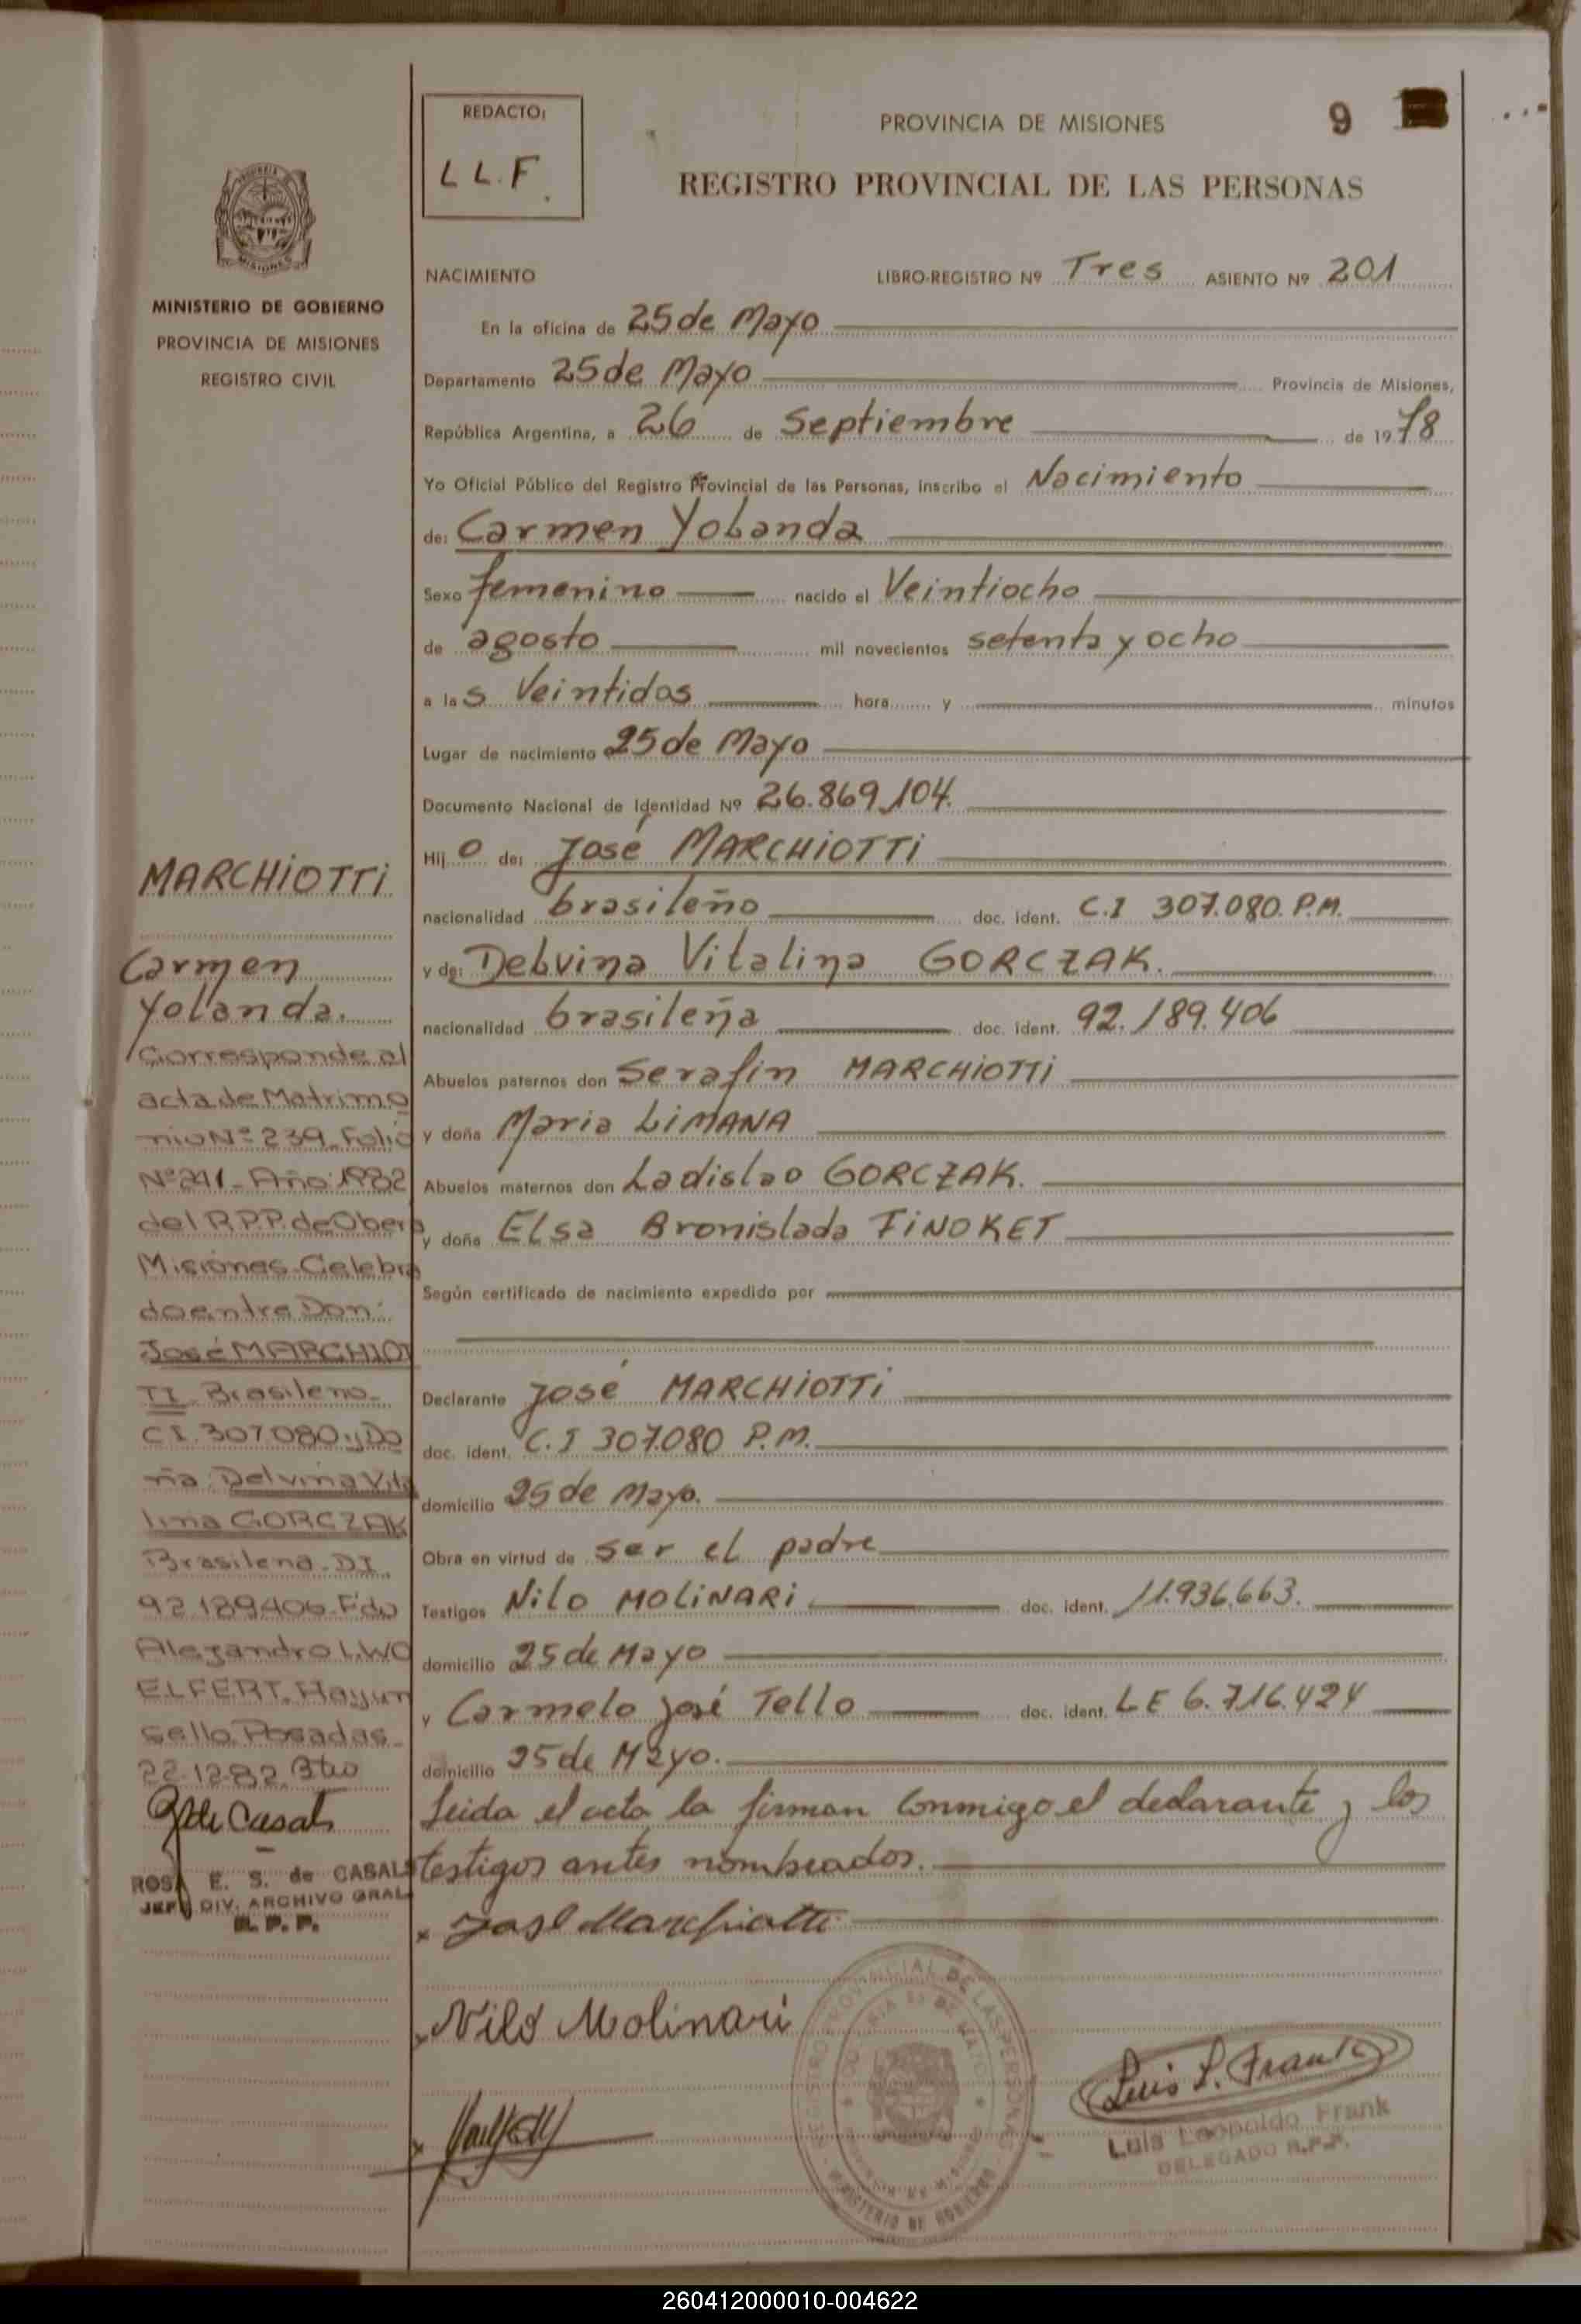 REDACTO:
LL.F.
PROVINCIA DE MISIONES
9
REGISTRO PROVINCIAL DE LAS PERSONAS
MISIONES
MINISTERIO DE GOBIERNO
PROVINCIA DE MISIONES
REGISTRO CIVIL
NACIMIENTO LIBRO-REGISTRO Nº Tres ASIENTO Nº 201
En la oficina de 25 de Mayo
Departamento 25 de Mayo Provincia de Misiones,
República Argentina, a 26 de Septiembre de 1978
Yo Oficial Público del Registro Provincial de las Personas, inscribo el Nacimiento
de: Carmen Yolanda
Sexo femenino nacido el Veintiocho
de agosto mil novecientos setenta y ocho
a las Veintidos hora y minutos
Lugar de nacimiento 25 de Mayo
Documento Nacional de Identidad Nº 26.869.104.
Hijo de: José MARCHIOTTI
nacionalidad brasileño doc. ident. C.I 307.080. P.M.
y de: Delvina Vitalina GORCZAK.
nacionalidad brasileña doc. ident. 92.189.406
Abuelos paternos don Serafin MARCHIOTTI
y doña Maria LIMANA
Abuelos maternos don Ladislao GORCZAK.
y doña Elsa Bronislada FINOKET
Según certificado de nacimiento expedido por
Declarante José MARCHIOTTI
doc. ident. C.I 307.080 P.M.
domicilio 25 de Mayo.
Obra en virtud de ser el padre
Testigos Nilo MOLINARI doc. ident. 11.936.663.
domicilio 25 de Mayo
y Carmelo José Tello doc. ident. LE 6.716.424
domicilio 25 de Mayo.
Leida el acta la firman conmigo el declarante y los
testigos antes nombrados.
x José Marchiotti
x Nilo Molinari
x
Luis L. Frank
Luis Leopoldo Frank
DELEGADO R.P.P.
REGISTRO PROVINCIAL DE LAS PERSONAS
MINISTERIO DE GOBIERNO
MARCHIOTTI
Carmen
Yolanda.
Corresponde al
acta de Matrimo
nio Nº 239 Folio
Nº 241 - Año 1982
del R.P.P. de Obera
Misiones. Celebra
do entre Don:
José MARCHIOT
TI Brasileno.
C I. 307.080 y Do
ña: Delvina Vita
lina GORCZAK
Brasilena. D I
92 189406. Fdo
Alejandro L. WO
ELFERT. Hay un
sello. Posadas
22.12.82.
de Casals
ROSA E. S. de CASALS
JEFE DIV. ARCHIVO GRAL
R. P. P.
260412000010-004622